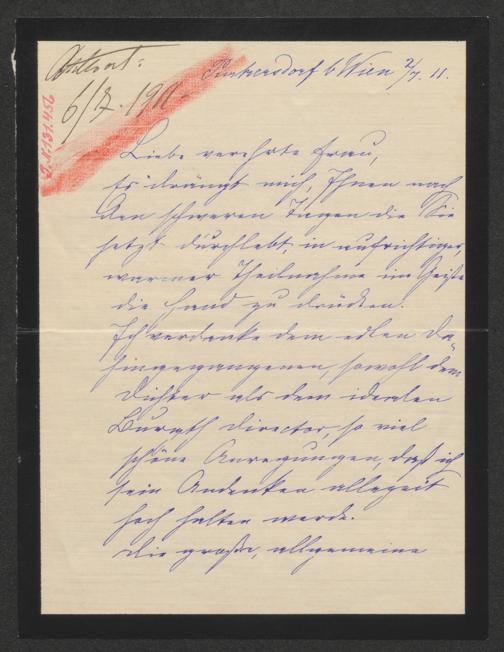 Antwort:
6/7. 1911
I.N. 131.456
Purkersdorf b Wien 2/7. 11.
Liebe verehrte Frau,
Es drängt mich, Ihnen nach
den schweren Tagen die Sie
jetzt durchlebt, in aufrichtiger,
warmer Theilnahme im Geiste
die Hand zu drücken.
Ich verdanke dem edlen Da-
hingegangenen, sowohl dem
Dichter als dem idealen
Burgth director, so viel
schöne Anregungen, daß ich
sein Andenken allezeit
hoch halten werde.
Die große, allgemeine